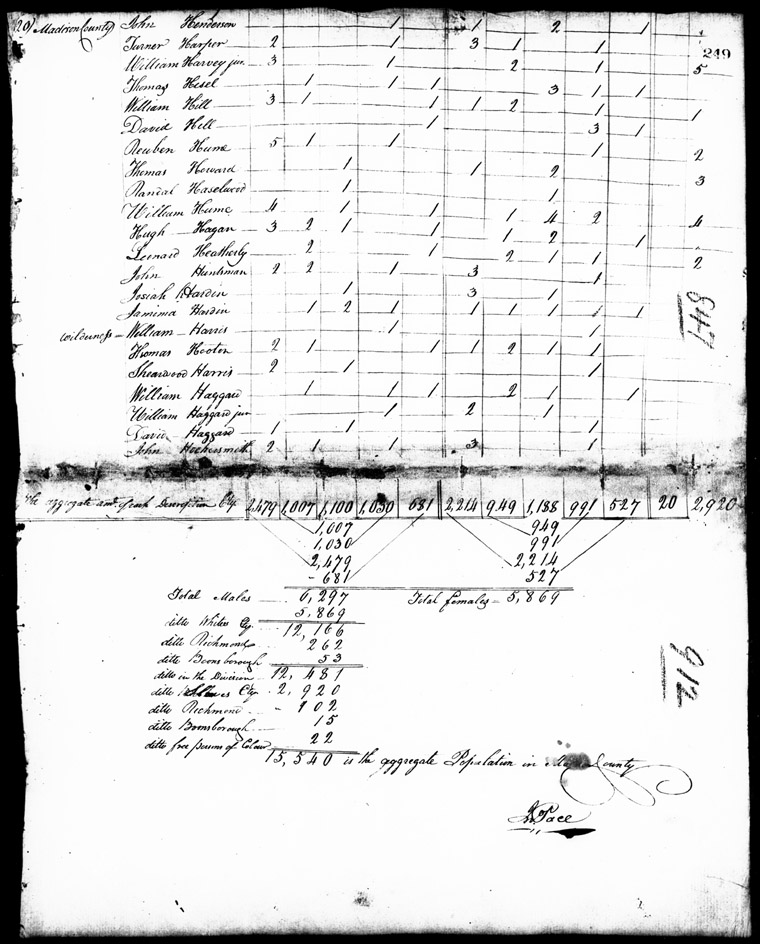 20) Madison County John Henderson 1 1 2 1
249
Turner Harper 2 1 3 1 1
William Harvey jun. 3 1 2 1 5
Thomas Hisel 1 1 1 3 1 1
William Hill 3 1 1 1 2 1 1
David Hill 1 3 1
Reuben Hume 5 1 1 1 2
Thomas Howard 1 1 2
Randal Haselwood 1 1 3
William Hume 4 1 1 1 4 2 4
Hugh Hagan 3 2 1 1 1 2 1
Leonard Heatherly 2 1 2 1 1 2
John Huntsman 2 2 1 3 1
Josiah Hardin 1 3 1
Jamima Hardin 1 2 1 1 1 1 1 1
wilderness - William Harris 1 1
Thomas Hooten 2 1 1 1 2 1 1
Shearwood Harris 2 1 1
William Haggard 1 1 1 2 1 1
William Haggard jun 1 2 1
David Haggard 1 1 1
John Hockersmith 2 1 1 3 1
The aggregate amt. of each Description Cty. 2,479 1,007 1,100 1,030 681 2,214 949 1,188 991 527 20 2,920
1,007 949
1,030 991
2,479 2,214
- 681 527
Total Males 6,297 Total females - 5,869
5,869
ditto Whites Cty. 12,166
ditto Richmond 262
ditto Boonsborough 53
ditto in the Division 12,481
ditto Slaves Cty. 2,920
ditto Richmond - 102
ditto Boonsborough 15
ditto free persons of Colour 22
15,540 is the aggregate Population in County
Pace